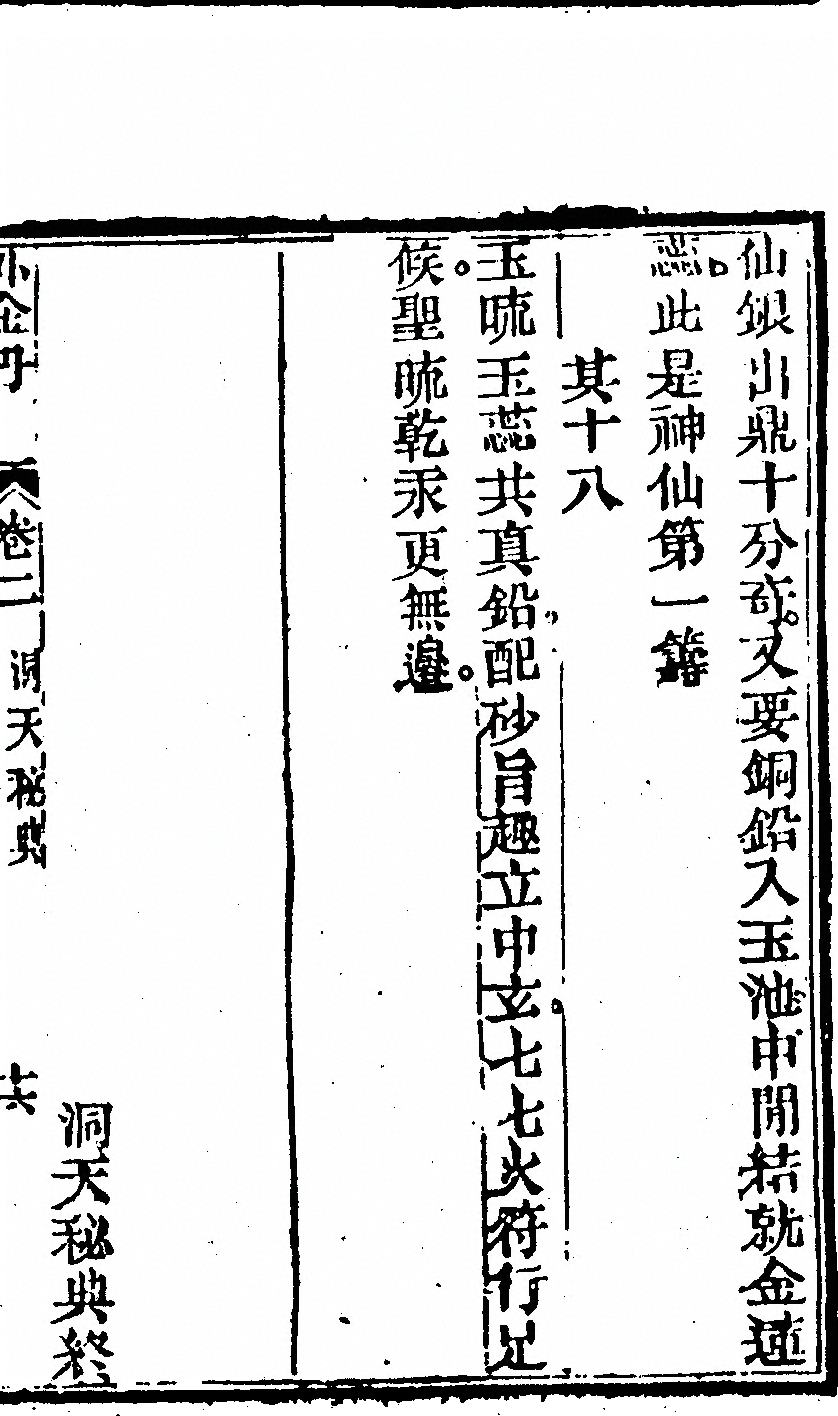 仙銀出鼎十分奇。又要銅鉛入玉池。中間結就金蓮
蕊。此是神仙第一籌
其十八
玉硫玉蕊共真鉛。配砂旨趣立中玄。七七火符行足
候。聖硫乾汞更無邊。
洞天秘典終
外金丹
卷二
洞天秘典
十六